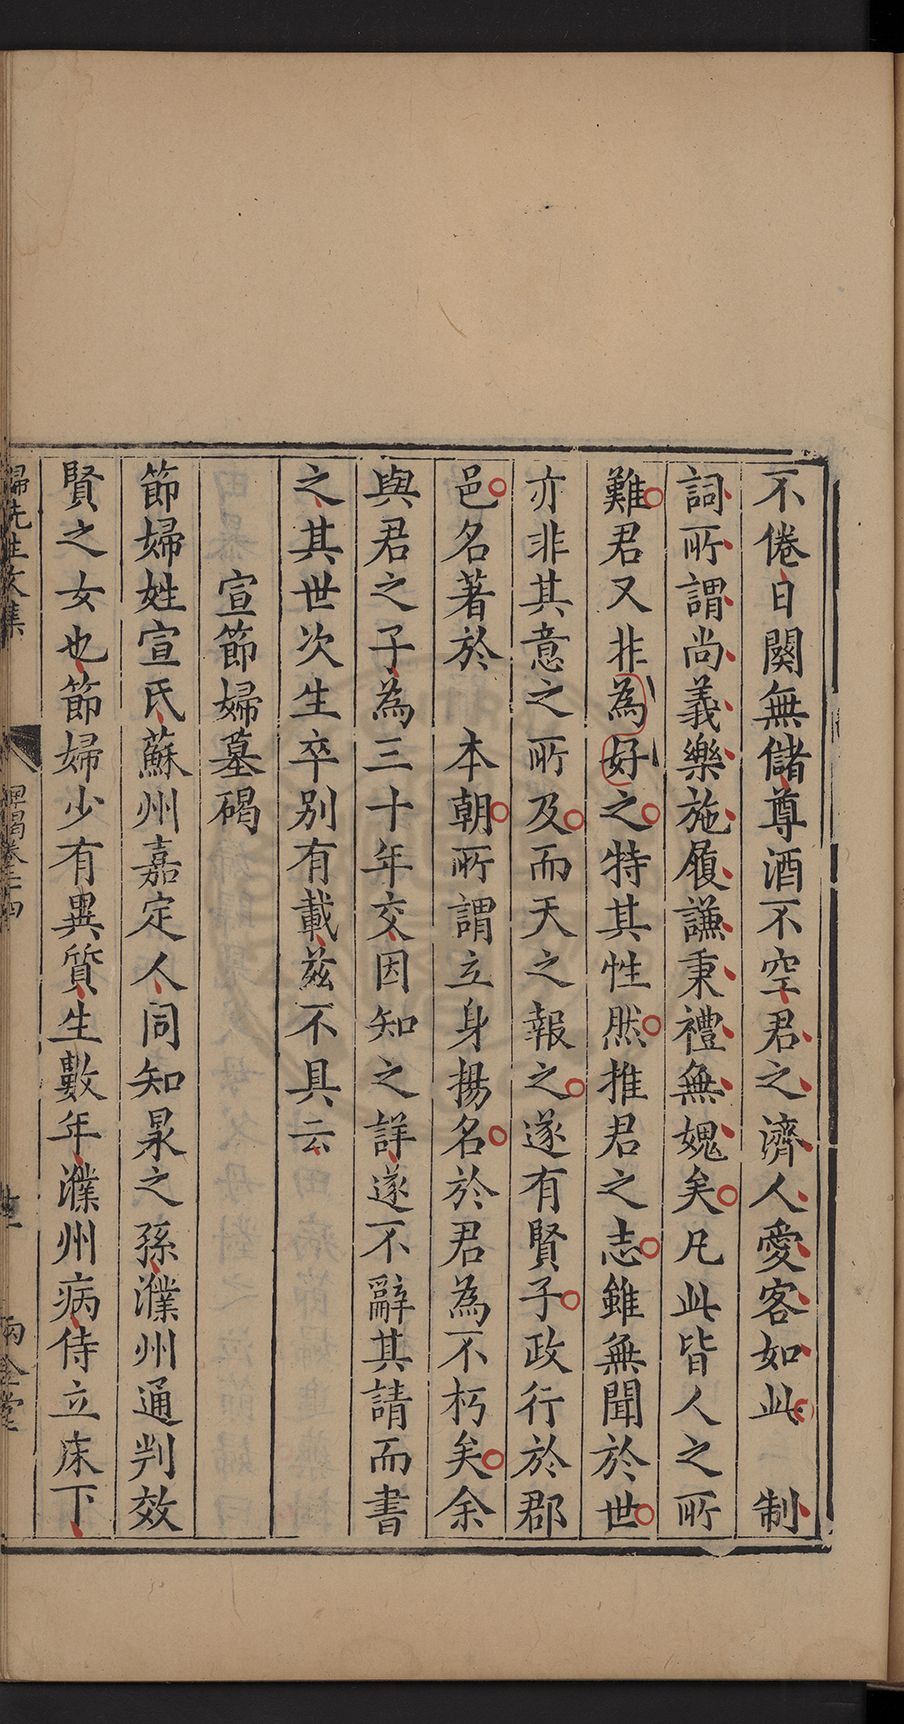 不倦日闋無儲尊酒不空君之濟人愛客如此　制
詞所謂尚義樂施履謙秉禮無媿矣凡此皆人之所
難君又非為好之特其性然推君之志雖無聞於世
亦非其意之所及而天之報之遂有賢子政行於郡
邑名著於　本朝所謂立身揚名於君為不朽矣余
與君之子為三十年交因知之詳遂不辭其請而書
之其世次生卒別有載茲不具云
宣節婦墓碣
節婦姓宣氏蘇州嘉定人同知泉之孫濮州通判效
賢之女也節婦少有異質生數年濮州病侍立床下